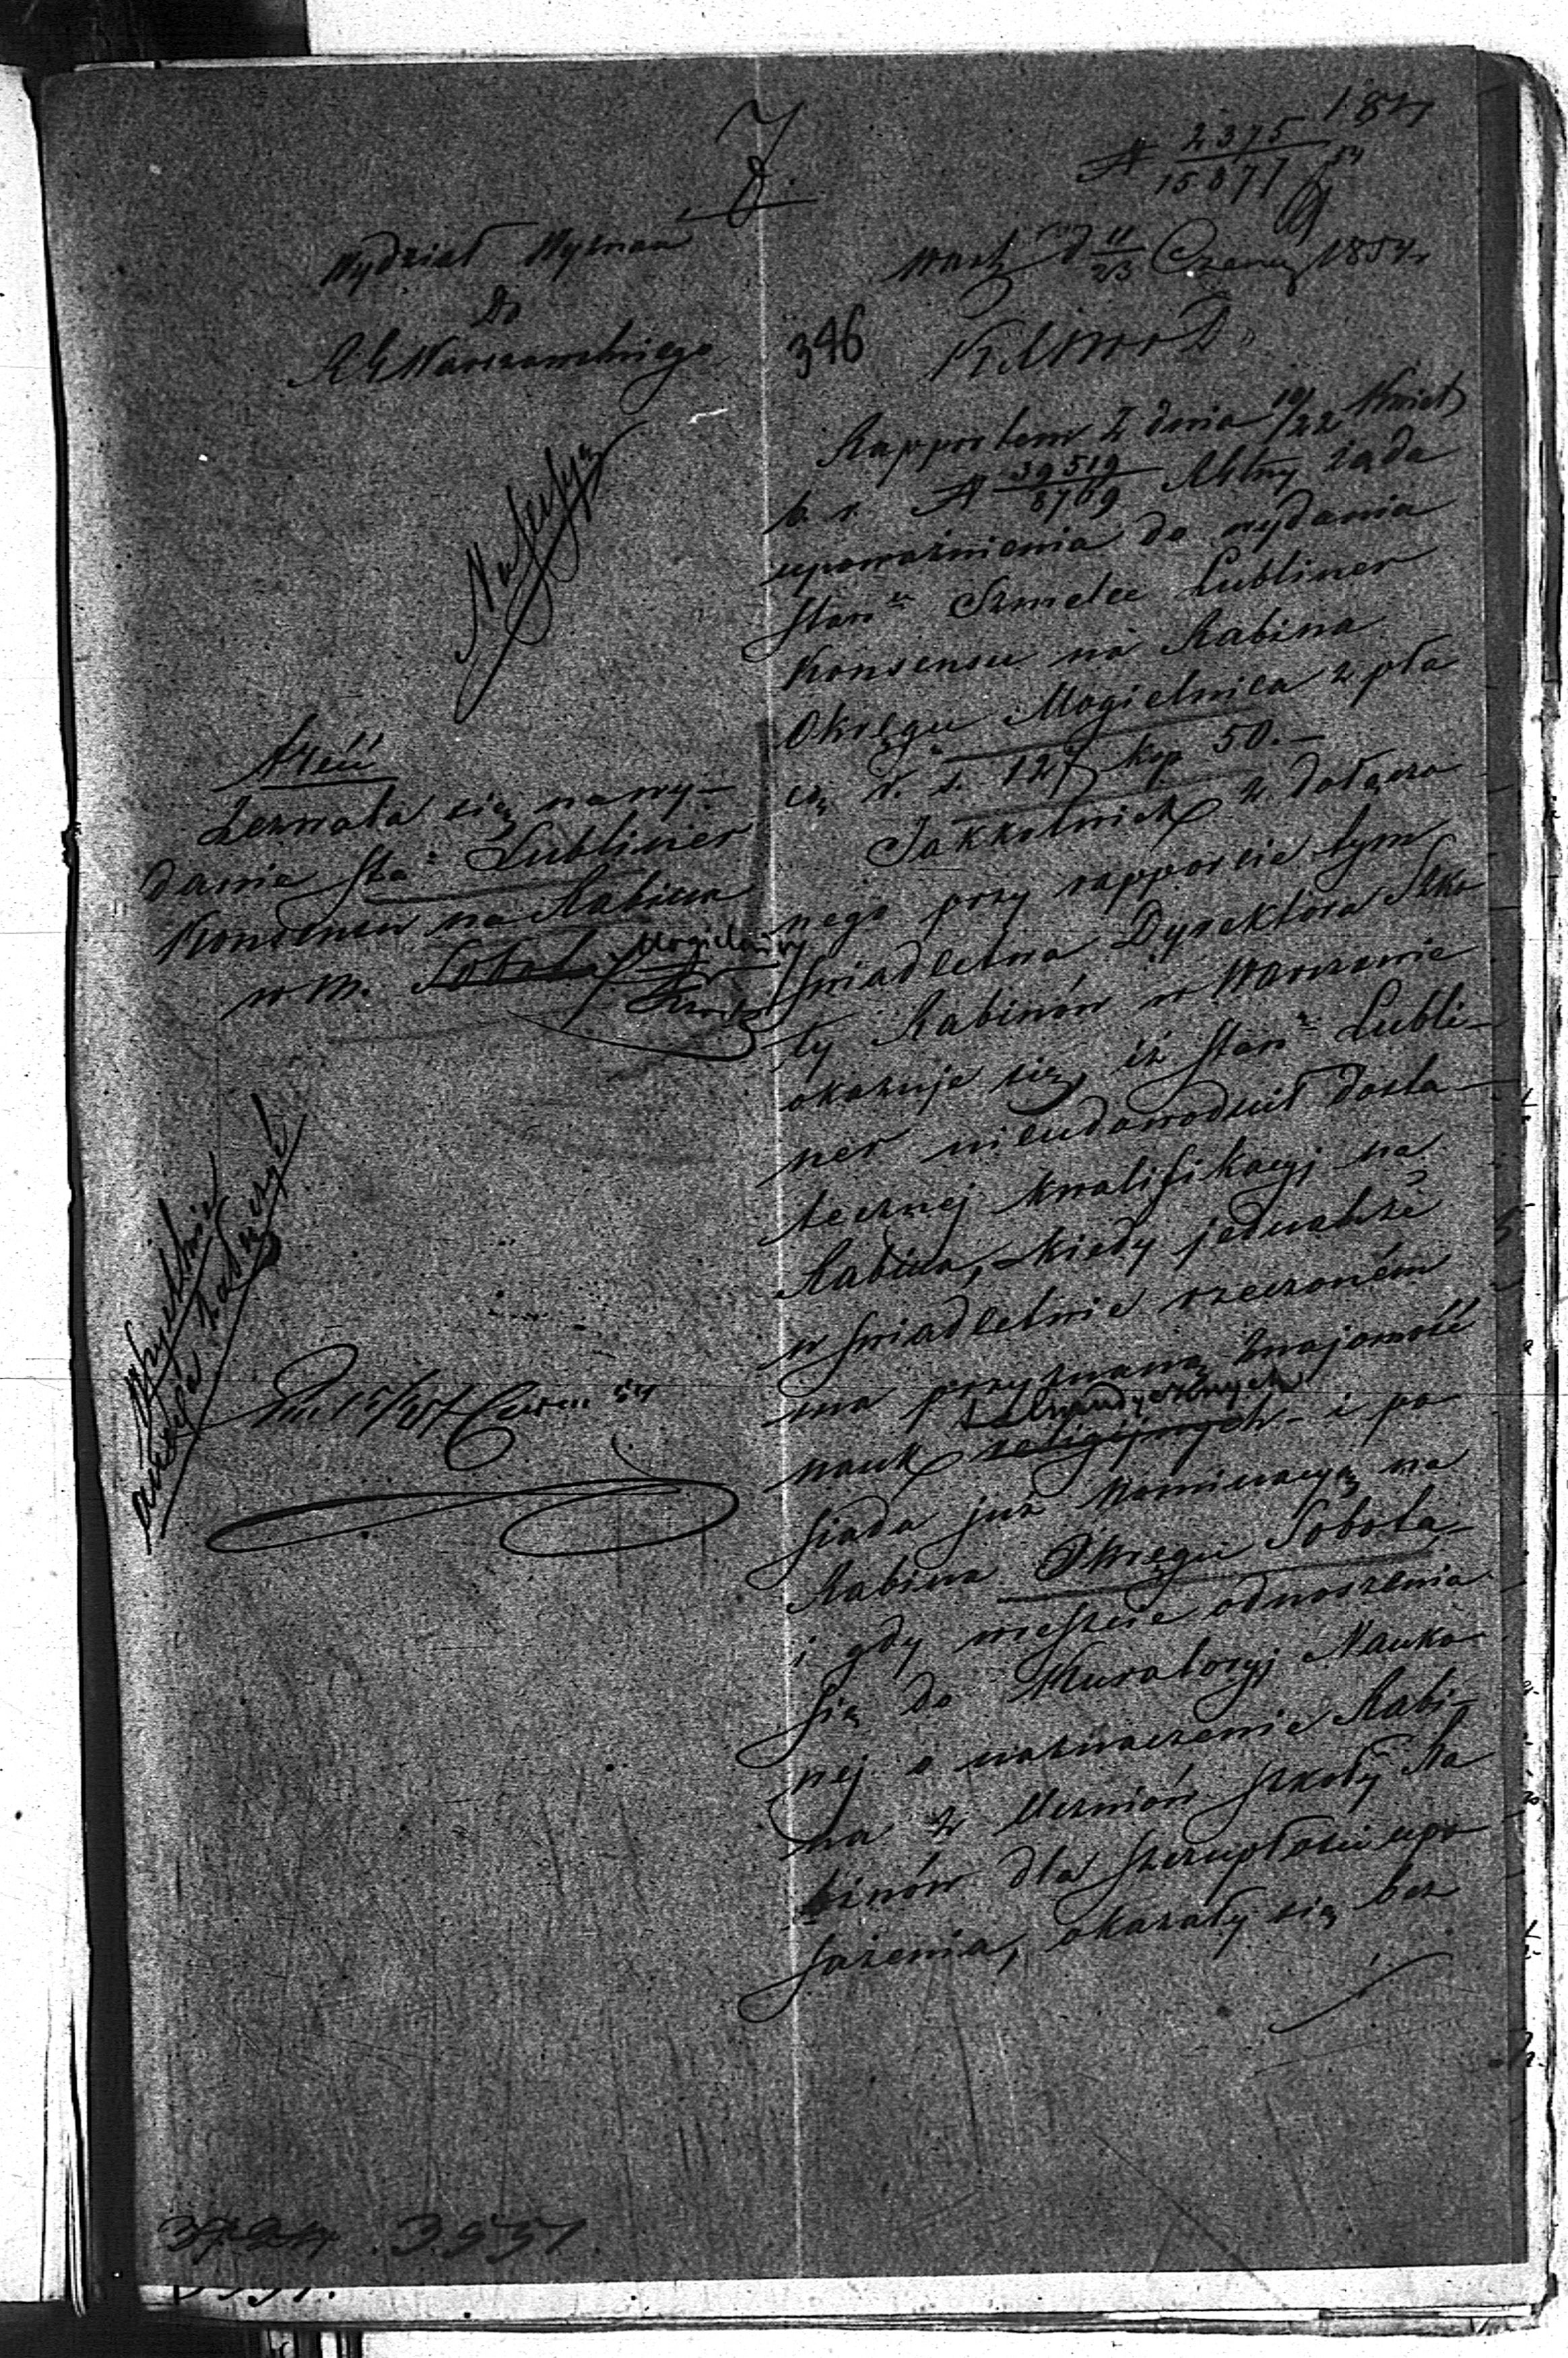 1854
№ 2375
15877 / 54
D.
Wydział Wyznań
Do
R. G. Warszawskiego
346
Warsz. d. 11/23 Czerw. 1854 r.
K. R. S. W. i D.
Rapportem z dnia 10/22 Kwiet.
b. r. № 39519/8769 żąda
upoważnienia do wydania
Starn. Szmelce Lubliner
Konsensu na Rabina
Okręgu Mogielnica z pła
cą r. s. 127 kop 50.—
Jakkolwiek z dołączo
nego przy rapporcie tym
świadectwa Dyrektora Szko
ły Rabinów w Warszawie
okazuje się, iż Starn. Lubli-
ner nieudowodnił dosta-
tecznej kwalifikacyj na
Rabina, kiedy jednakże
w świadectwie rzeczoném
ma przyznaną znajomość
talmudycznych
nauk religijnych i po
siada już nominacyą na
Rabina Okręgu Sobota
i gdy wreszcie odnoszenia
się do Kuratoryi Nauko
wej o naznaczenie Rabi-
na z Uczniów Szkoły Ra
binów dla szczupłości upo
sażenia, okazały się bez
Treść
Zezwala się na wy-
danie Sta. Lubliner
Konsensu na Rabina
w m. Sobota Mogielnicy
Dn. 15/27 Czerw. 54
3951